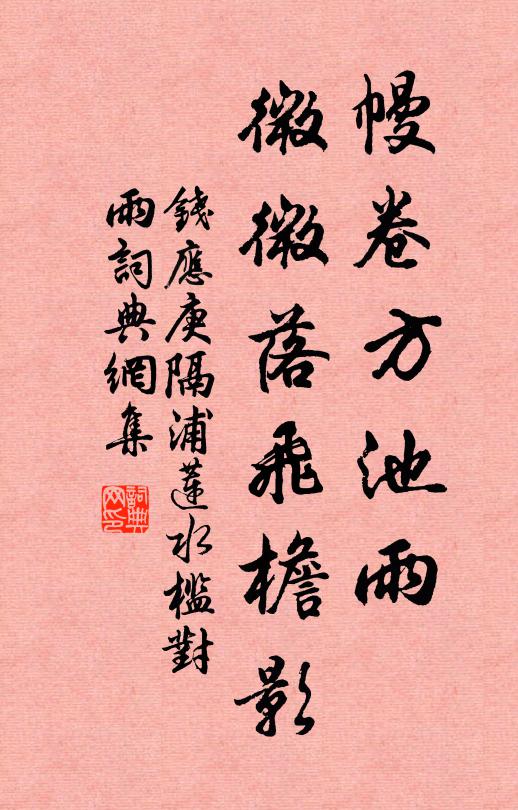 幔卷方池雨
微微落飛檐影
錢應庚隔浦蓮水檻對
雨詞典網集
詞典
网印